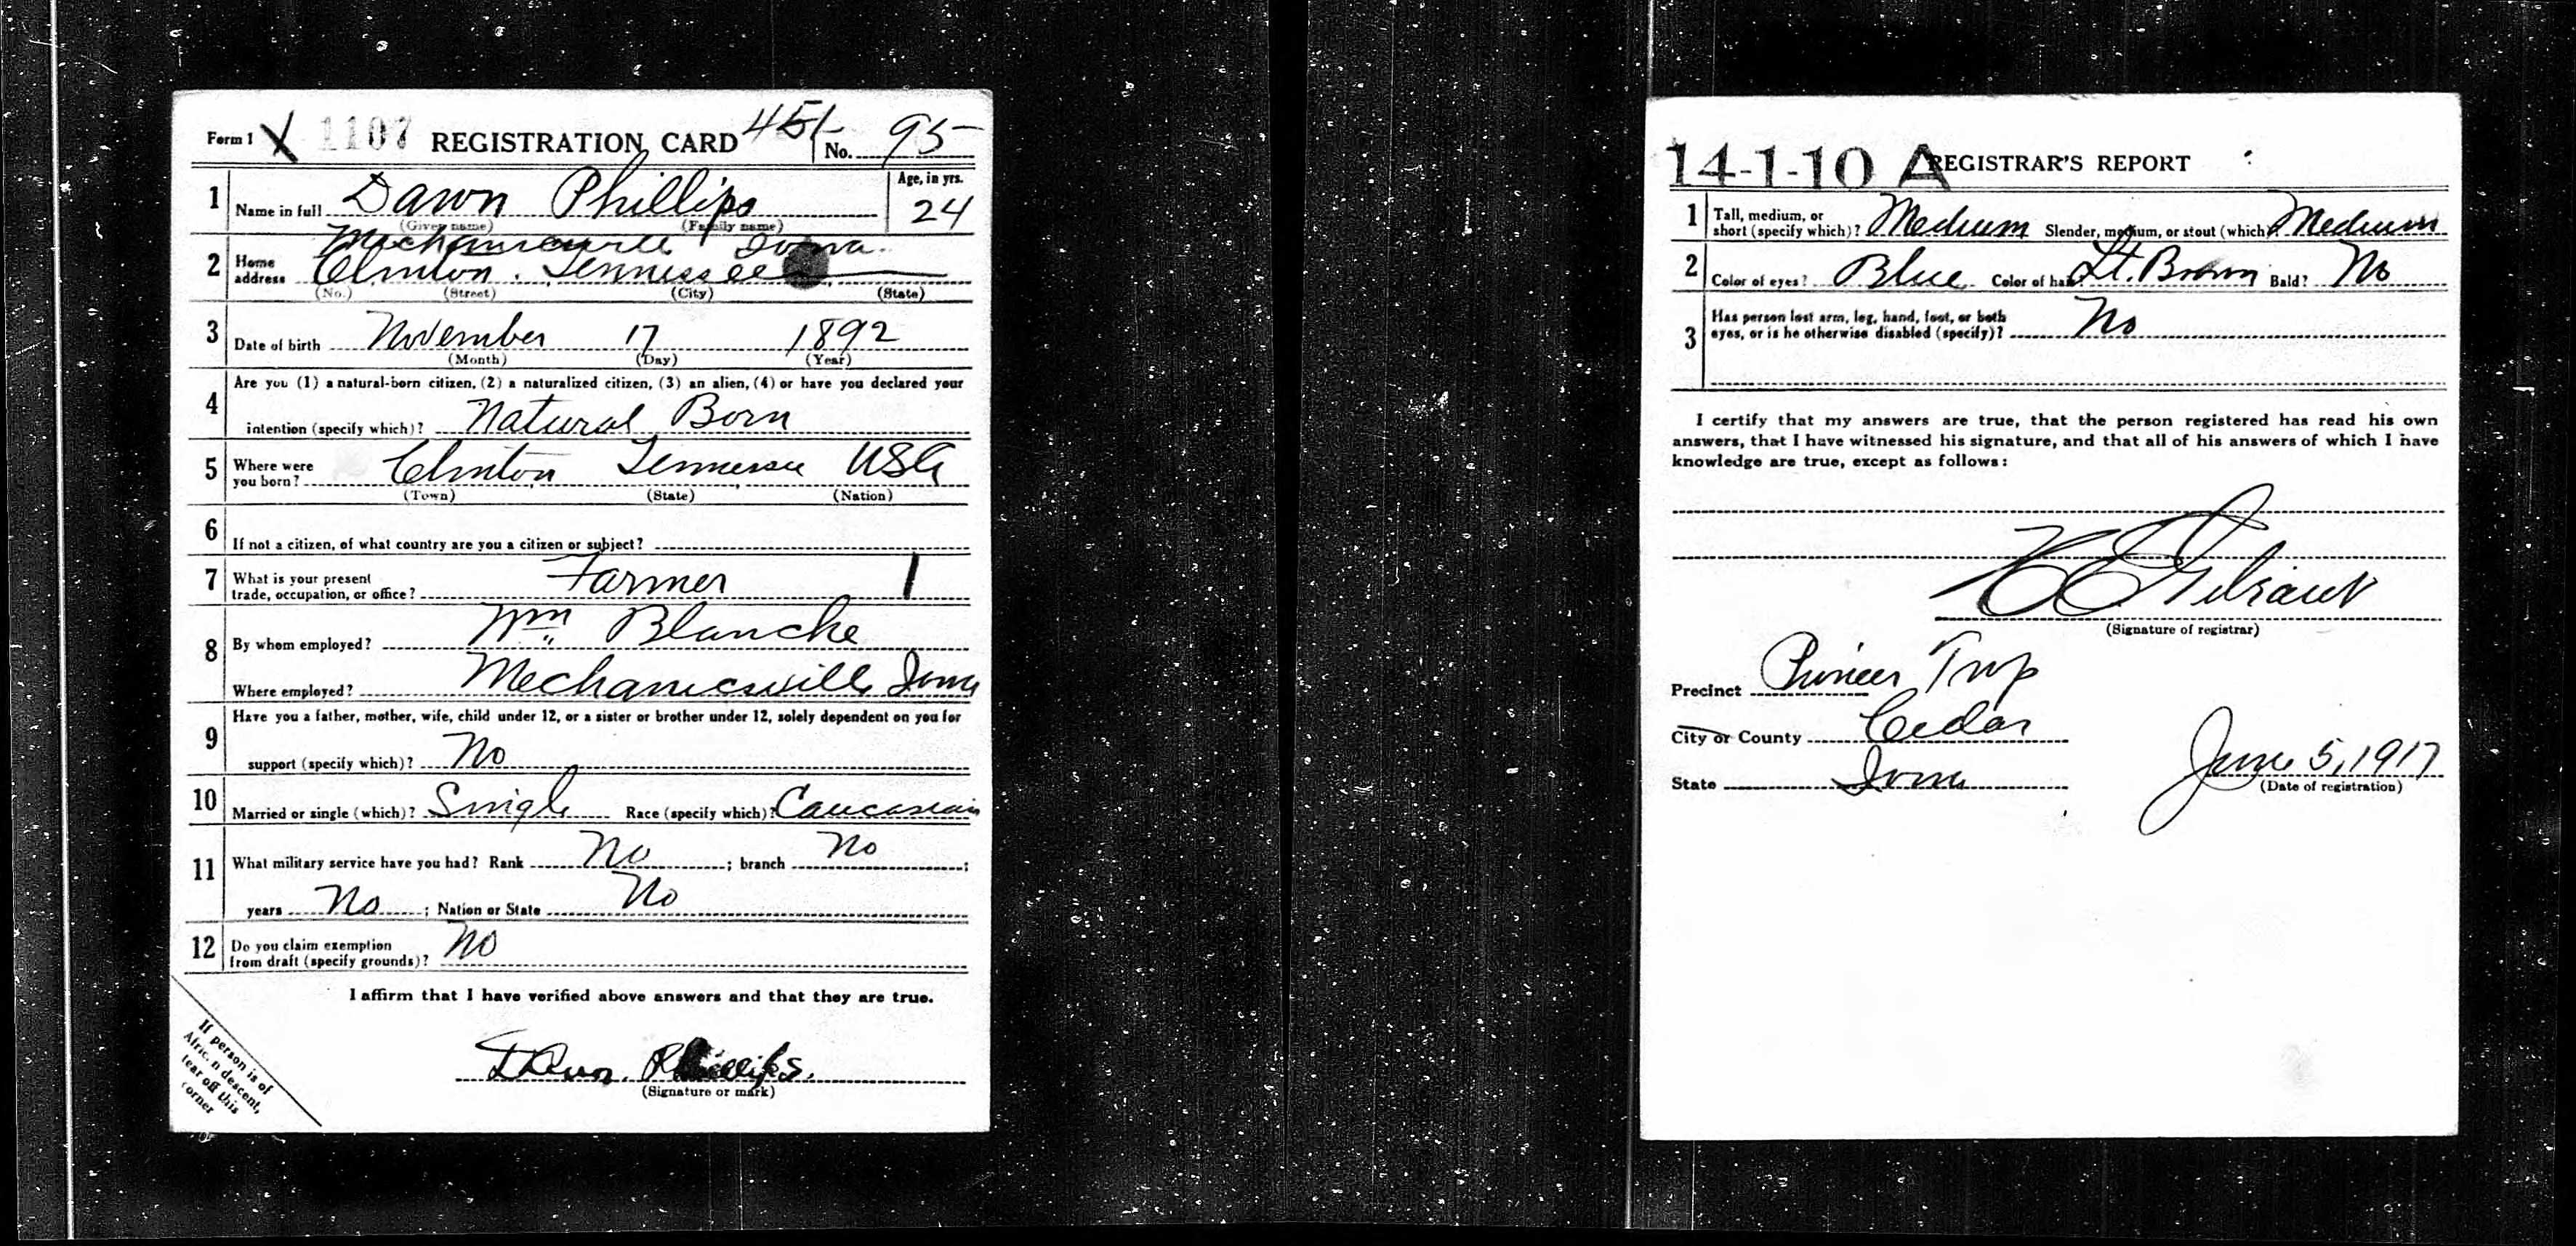 Form 1 X 1107 REGISTRATION CARD 451 No. 95
1 Name in full Dawn Phillips Age, in yrs. 24
(Given name) (Family name)
Mechanicsville Iowa
2 Home address Clinton. Tennessee
(No.) (Street) (City) (State)
3 Date of birth November 17 1892
(Month) (Day) (Year)
4 Are you (1) a natural-born citizen, (2) a naturalized citizen, (3) an alien, (4) or have you declared your
intention (specify which)? Natural Born
5 Where were you born? Clinton Tennessee USA
(Town) (State) (Nation)
6 If not a citizen, of what country are you a citizen or subject?
7 What is your present
trade, occupation, or office? Farmer 1
8 By whom employed? Wm Blanche
Where employed? Mechanicsville Iowa
9 Have you a father, mother, wife, child under 12, or a sister or brother under 12, solely dependent on you for
support (specify which)? No
10 Married or single (which)? Single Race (specify which)? Caucasian
11 What military service have you had? Rank No ; branch No ;
years No ; Nation or State No
12 Do you claim exemption
from draft (specify grounds)? No
I affirm that I have verified above answers and that they are true.
If person is of
African descent,
tear off this
corner
Dawn. Phillips.
(Signature or mark)
14-1-10 A REGISTRAR'S REPORT
1 Tall, medium, or
short (specify which)? Medium Slender, medium, or stout (which)? Medium
2 Color of eyes? Blue Color of hair? Lt. Brown Bald? No
3 Has person lost arm, leg, hand, foot, or both
eyes, or is he otherwise disabled (specify)? No
I certify that my answers are true, that the person registered has read his own
answers, that I have witnessed his signature, and that all of his answers of which I have
knowledge are true, except as follows:
(Signature of registrar)
Precinct Pioneer Twp
City or County Cedar
State Iowa
June 5, 1917
(Date of registration)